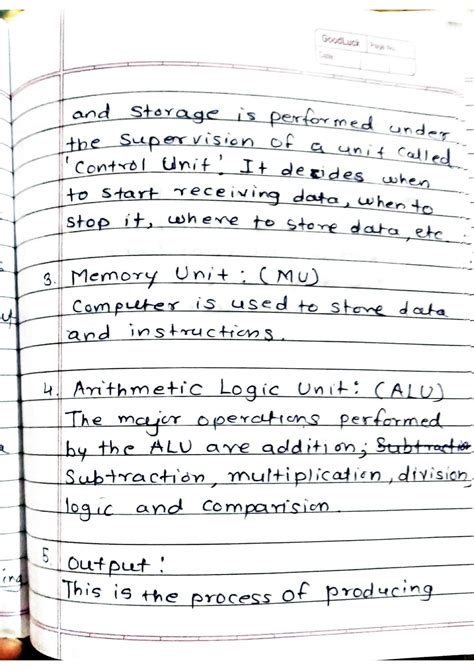 GoodLuck Page No.
Date
and storage is performed under
the supervision of a unit called
'Control Unit'. It decides when
to start receiving data, when to
stop it, where to store data, etc
3. Memory Unit : (MU)
Computer is used to store data
and instructions.
4. Arithmetic Logic Unit : (ALU)
The major operations performed
by the ALU are addition, Subtractio
Subtraction, multiplication, division,
logic and comparision.
5. Output :
ing
This is the process of producing